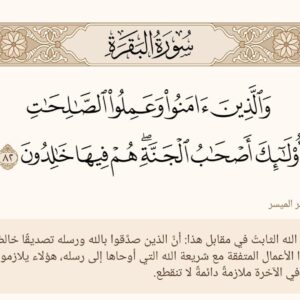 سُورَةُ الْبَقَرَةِ
وَالَّذِينَ ءَامَنُوا۟ وَعَمِلُوا۟ الصَّالِحَاتِ
أُو۟لَٰٓئِكَ أَصْحَابُ الْجَنَّةِ ۖ هُمْ فِيهَا خَالِدُونَ ٨٢
ر الميسر
الله الثابتُ في مقابل هذا: أنَّ الذين صدَّقوا بالله ورسله تصديقًا خالص
ا الأعمال المتفقة مع شريعة الله التي أوحاها إلى رسله، هؤلاء يلازمو
في الآخرة ملازمةً دائمةً لا تنقطع.